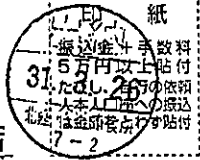 印 紙
振込金+手数料
5万円以上貼付
ただし、 の依頼
人本人口座への振込
は金額を点わず貼付
31 3. 26
7-2